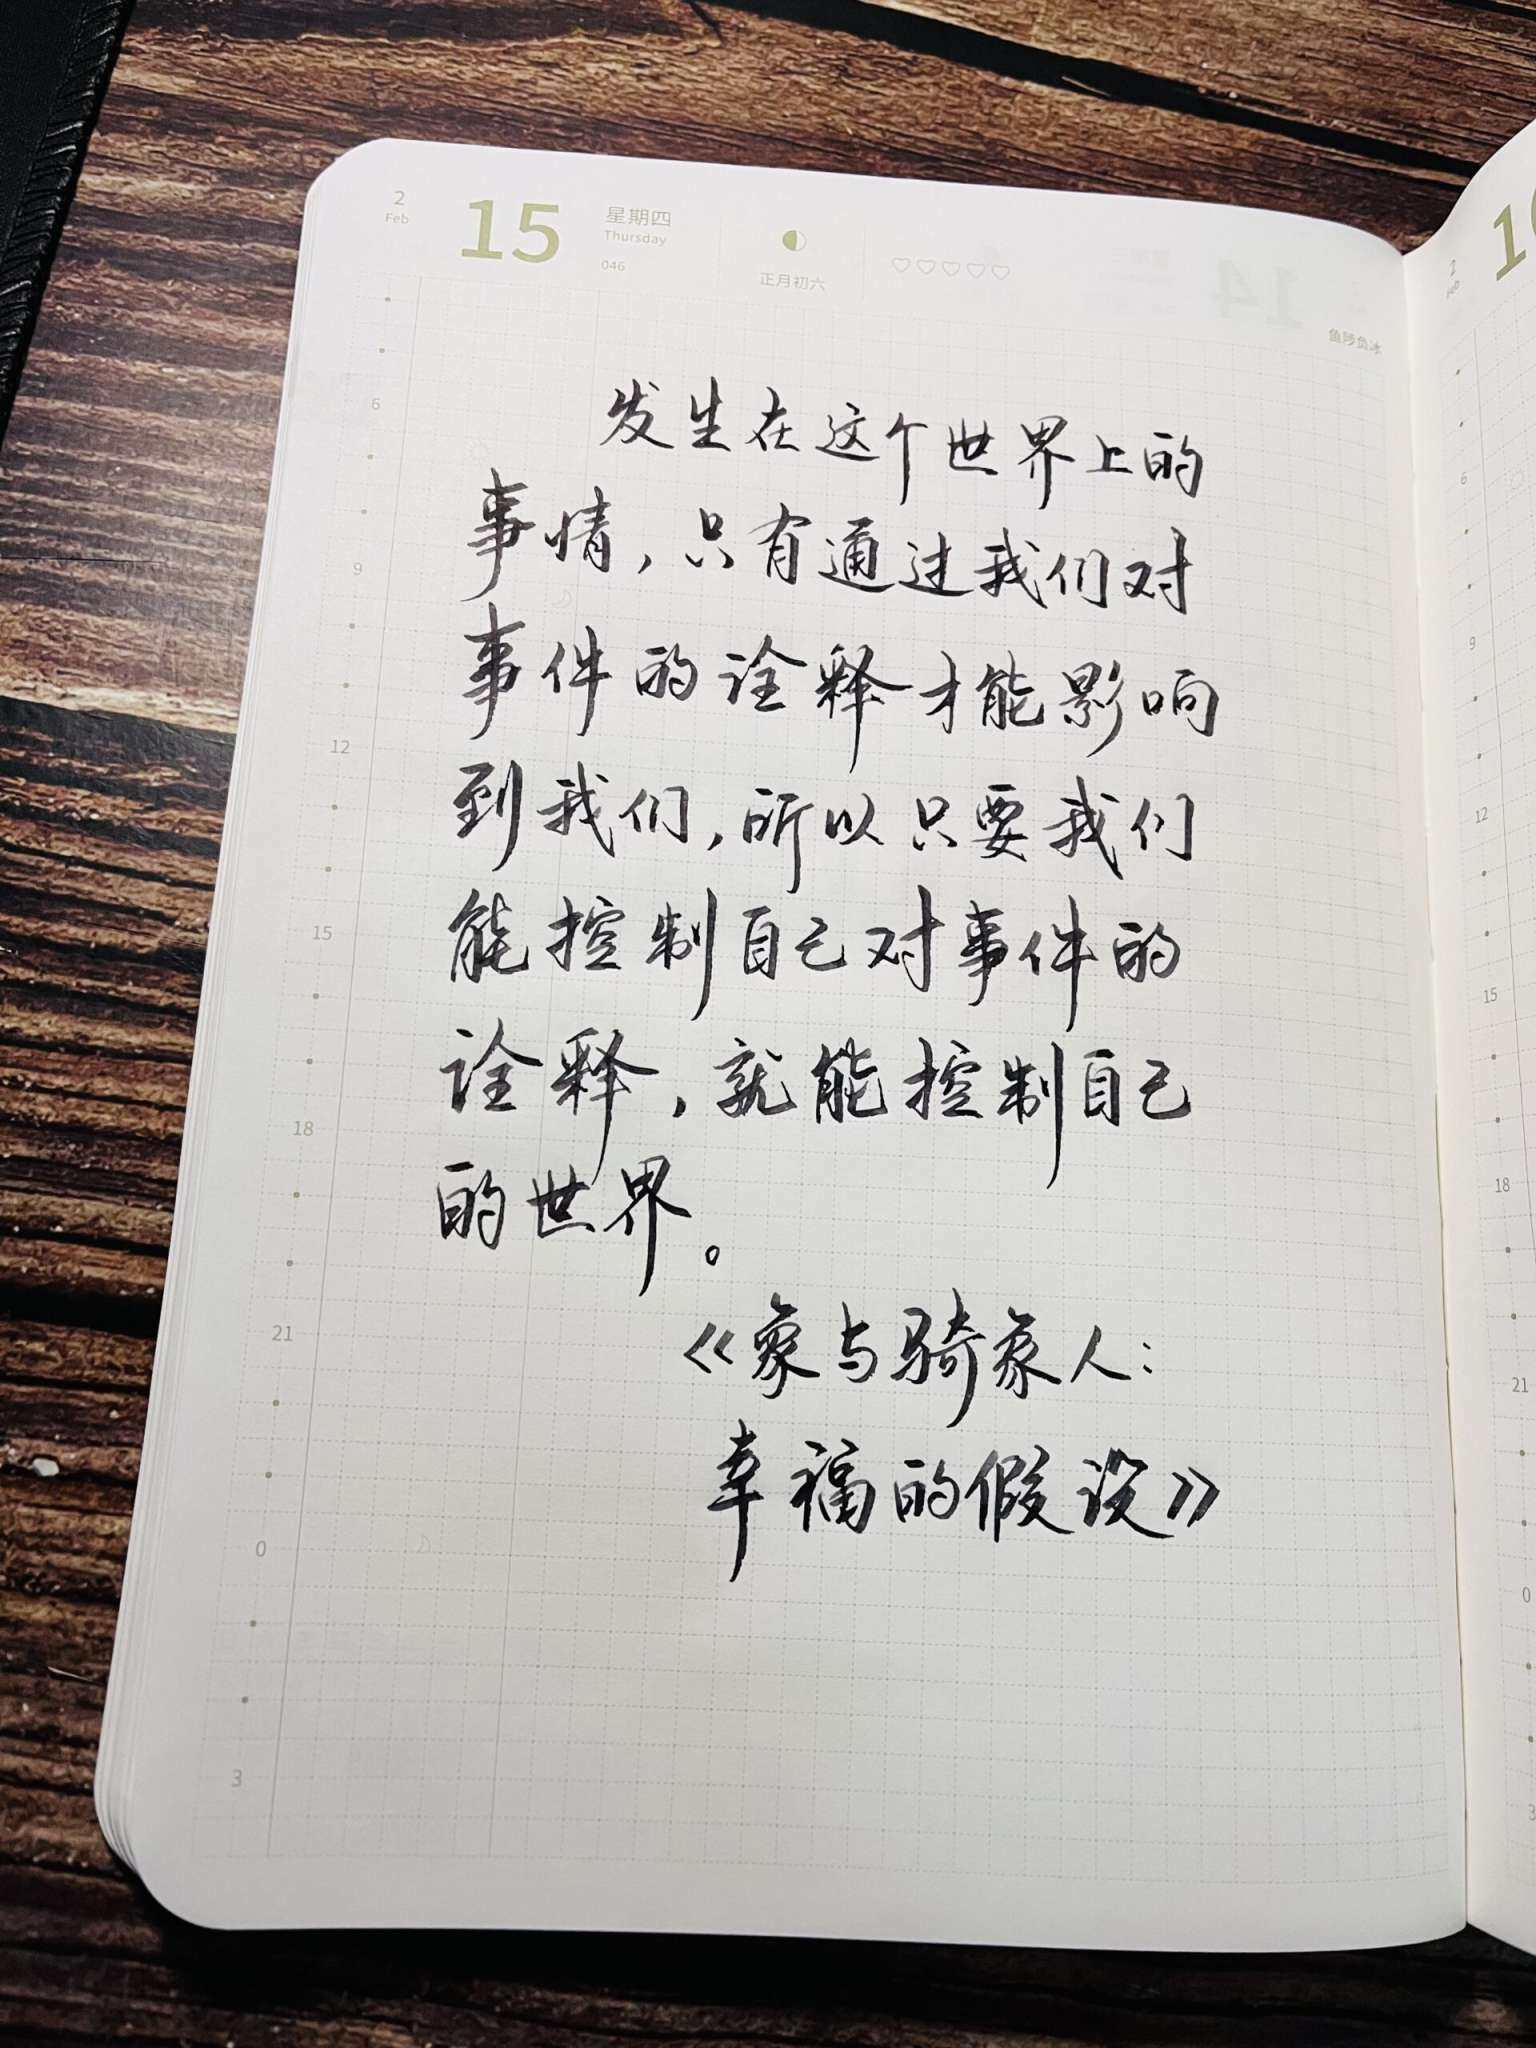 2
Feb
15
星期四
Thursday
046
正月初六
14
鱼陟负冰
发生在这个世界上的
事情,只有通过我们对
事件的诠释才能影响
到我们,所以只要我们
能控制自己对事件的
诠释,就能控制自己
的世界。
《象与骑象人:
幸福的假设》
6
9
12
15
18
21
0
3
2
Feb
6
9
12
15
18
21
0
3